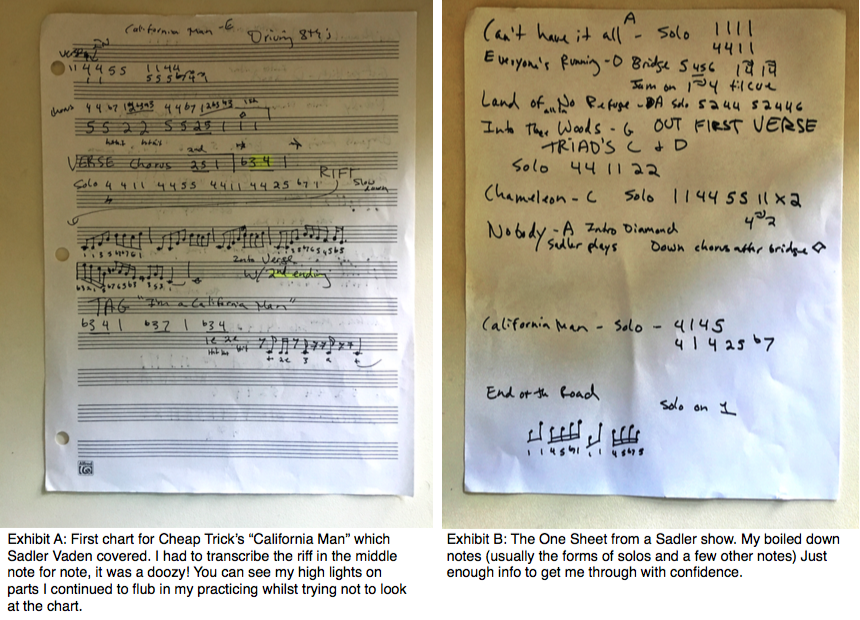 California Man - G
Driving 8th's
verse
1 1 4 4 5 5 1 1 4 4
chorus 4 4 b7 4 4 b7
5 5 2 2 5 5 2 5 1 1 1
2nd
VERSE Chorus 2 5 1 b3 4 1
RIFF
Solo 4 4 1 1 4 4 5 5 4 4 1 1 4 4 2 5 b7 1 slow down
Into Verse
W/ 2nd ending
TAG "I'm a California Man"
b3 4 1 b3 7 1 b3 4
Can't have it all A - Solo 1 1 1 1
4 4 1 1
Everyone's Running - D Bridge 5 4 5 6
Jam on 1 4 til cue
Land of No Refuge - A Solo 5 2 4 4 5 2 4 4 6
Into The Woods - G OUT FIRST VERSE
TRIAD'S C & D
Solo 4 4 1 1 2 2
Chameleon - C Solo 1 1 4 4 5 5 1 1 x 2
4 2
Nobody - A Intro Diamond
Sadler plays Down chorus after bridge ◇
California Man - Solo - 4 1 4 5
4 1 4 2 5 b7
End of the Road
Solo on 1
1 1 4 5 b7 1 1 4 5 b7 5
Exhibit A: First chart for Cheap Trick's “California Man” which
Sadler Vaden covered. I had to transcribe the riff in the middle
note for note, it was a doozy! You can see my high lights on
parts I continued to flub in my practicing whilst trying not to look
at the chart.
Exhibit B: The One Sheet from a Sadler show. My boiled down
notes (usually the forms of solos and a few other notes) Just
enough info to get me through with confidence.